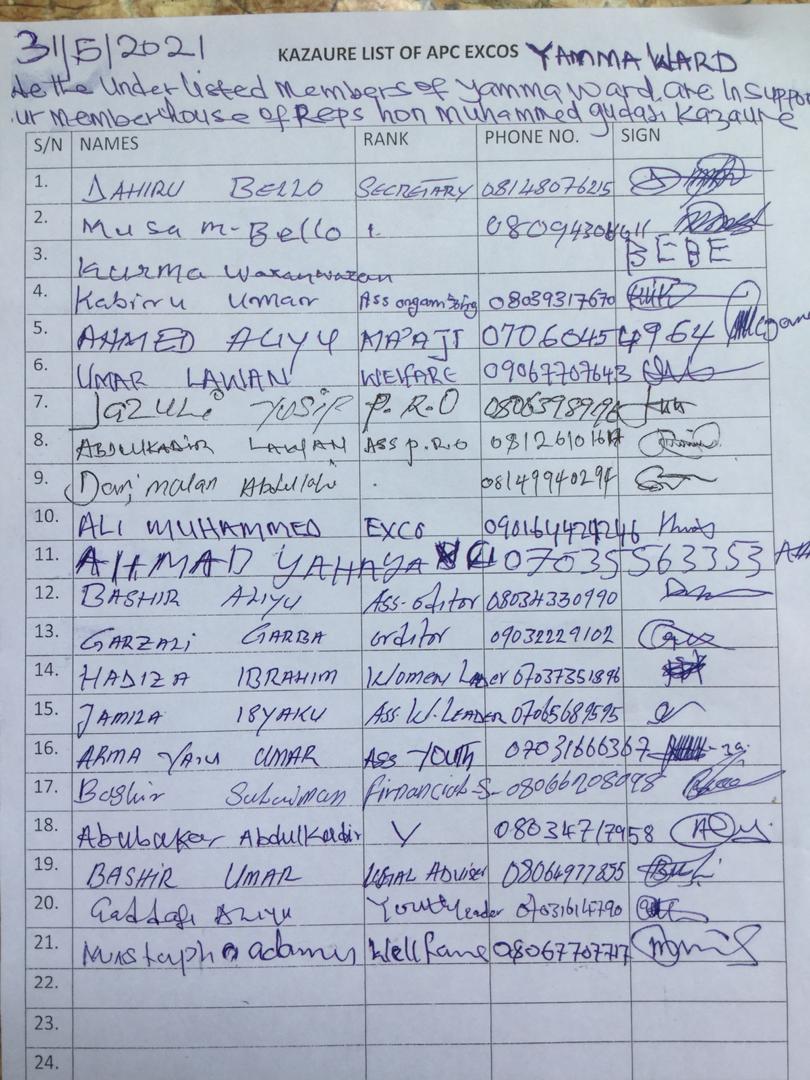 31/5/2021 KAZAURE LIST OF APC EXCOS YAMMA WARD
We the Underlisted Members of Yamma Ward are In support
ur Member house of Reps hon Muhammed gudaji Kazaure
S/N NAMES RANK PHONE NO. SIGN
1. DAHIRU BELLO SECRETARY 08148076215
2. Musa m-Bello 08094306411
3. Kurma wazanwazan BEBE
4. Kabiru Umar Ass organizing 08039317670
5. AHMED ALIYU MA'AJI 07060454964
6. UMAR LAWAN WELFARE 09067707643
7. Jazuli YUSIF P.R.O
8. ABDULKADIR LAWAN ASS P.R.O
9. Danjmalan Abdullahi 08149940294
10. ALI MUHAMMED EXCO 09016444246
11. AHMAD YAHAYA 07035563353
12. BASHIR ALIYU Ass. oditor 08034330990
13. GARZALi GARBA orditor 09032229102
14. HADIZA IBRAHIM Women Leader 07037351896
15. JAMILA ISYAKU Ass. W. LEADER 07065689595
16. ARMA YAU UMAR Ass YOUTH 07031666367
17. Bashir Sulaiman financial S- 08066208098
18. Abubakar Abdulkadir V 08034717958
19. BASHIR UMAR LEGAL ADViser 08064977855
20. Gaddafi ALIYU Youth leader 07031614790
21. Mustapha adamu Wellfane 08067707717
22.
23.
24.